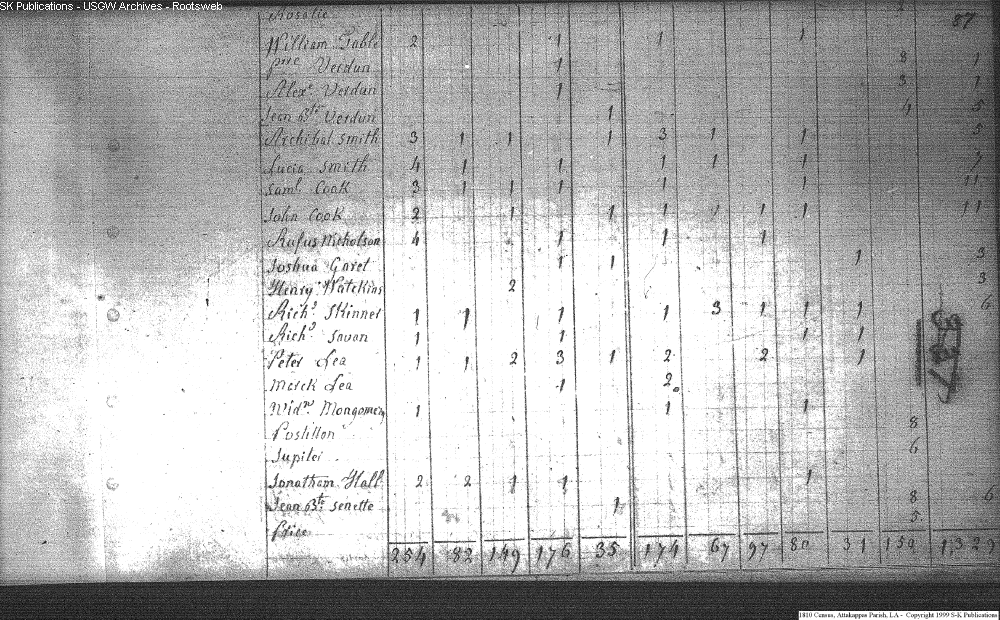 SK Publications - USGW Archives - Rootsweb
Rosalie 2 87
William Gable 2 1 1 1
pre Verdun 1 8 1
Alexe Verdun 1 3 1
Jean Bste Verdun 1 4 5
Archibal Smith 3 1 1 1 3 1 1 5
Lucia Smith 4 1 1 1 1 1 7
Saml Cook 3 1 1 1 1 1 11
John Cook 2 1 1 1 1 1 1 11
Rufus Nicholson 4 1 1 1
Joshua Garet 1 1 1 3
Henry Watckins 2 3
Richd Skinner 1 1 1 1 3 1 1 1 6
Richd Savon 1 1 1 1
Peter Lea 1 1 2 3 1 2 2 1
Merck Lea 1 2
Widw Mongomery 1 1 1
Postillon 8
Jupiter 6
Jonatham Hall 2 2 1 1 1
Jean Bste Senette 1 8 6
Price 5
254 82 149 176 35 174 67 97 80 31 150 1,329
1810 Census, Attakappas Parish, LA - Copyright 1999 S-K Publications